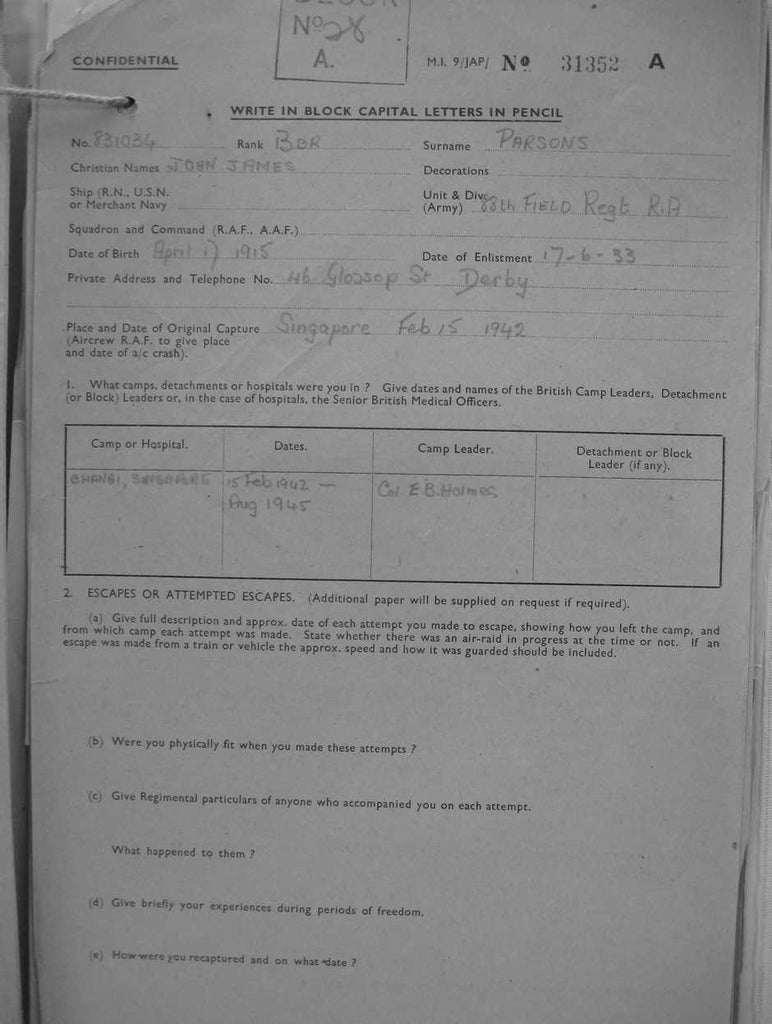 No 28
A.
CONFIDENTIAL
M.I. 9/JAP/ No 31352 A
WRITE IN BLOCK CAPITAL LETTERS IN PENCIL
No. 831034 Rank BDR Surname PARSONS
Christian Names JOHN JAMES Decorations
Ship (R.N., U.S.N. or Merchant Navy
Unit & Div. (Army) 88th FIELD Regt R.A
Squadron and Command (R.A.F., A.A.F.)
Date of Birth April 17 1915 Date of Enlistment 17-6-33
Private Address and Telephone No. 46 Glossop St Derby
Place and Date of Original Capture Singapore Feb 15 1942
(Aircrew R.A.F. to give place
and date of a/c crash).
1. What camps, detachments or hospitals were you in ? Give dates and names of the British Camp Leaders, Detachment
(or Block) Leaders or, in the case of hospitals, the Senior British Medical Officers.
Camp or Hospital. Dates. Camp Leader. Detachment or Block
Leader (if any).
CHANGI, SINGAPORE 15 Feb 1942 — Col E.B. Holmes
Aug 1945
2. ESCAPES OR ATTEMPTED ESCAPES. (Additional paper will be supplied on request if required).
(a) Give full description and approx. date of each attempt you made to escape, showing how you left the camp, and
from which camp each attempt was made. State whether there was an air-raid in progress at the time or not. If an
escape was made from a train or vehicle the approx. speed and how it was guarded should be included.
(b) Were you physically fit when you made these attempts ?
(c) Give Regimental particulars of anyone who accompanied you on each attempt.
What happened to them ?
(d) Give briefly your experiences during periods of freedom.
(e) How were you recaptured and on what date ?